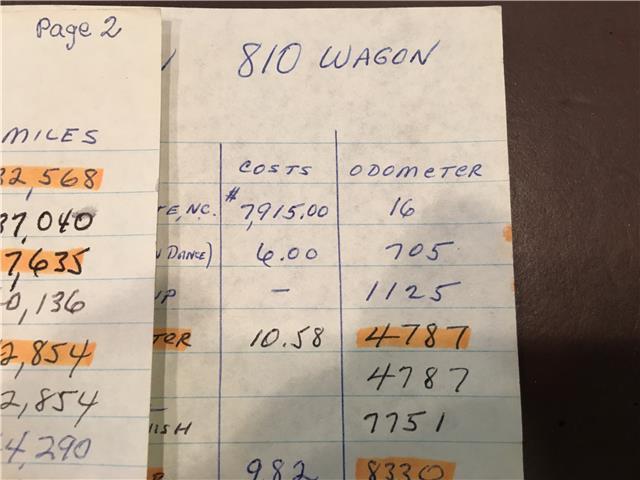 Page 2
MILES
32,568
37,040
7,635
0,136
2,854
2,854
4,290
810 WAGON
COSTS ODOMETER
TE, N.C. $7,915.00 16
DANCE) 6.00 705
UP — 1125
TER 10.58 4787
4787
ISH 7751
982 8330